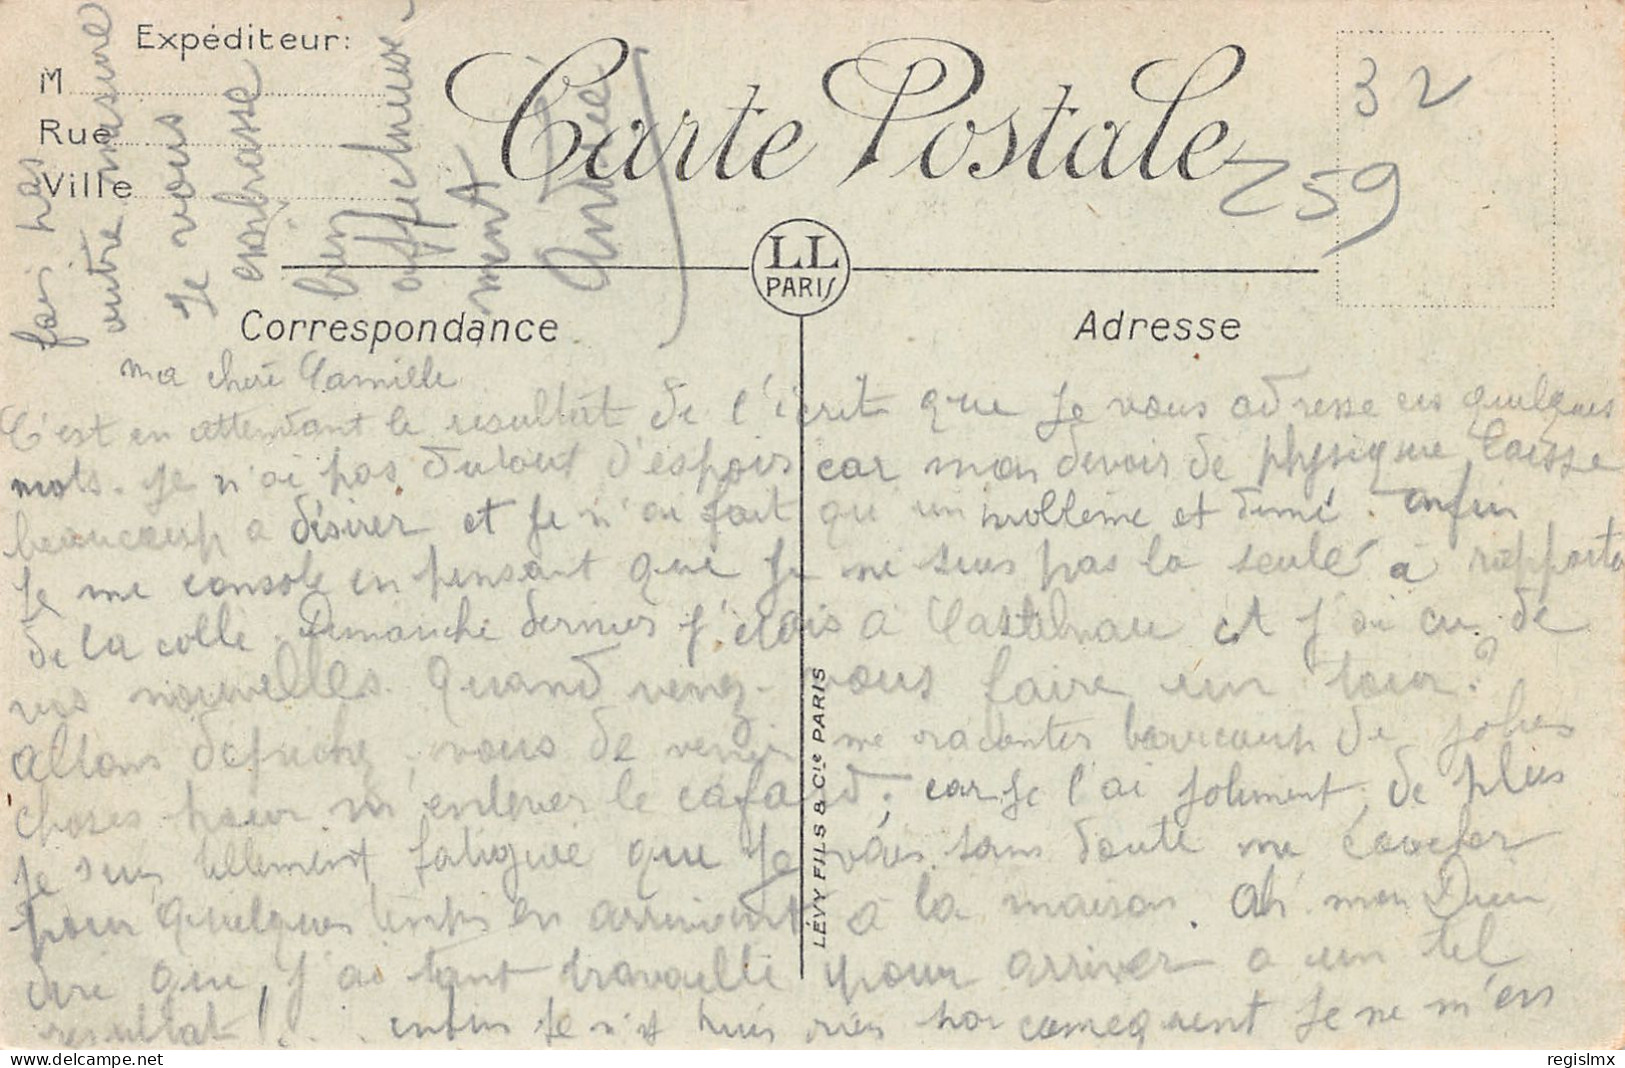 Expéditeur:
M
Rue
Ville
Carte Postale
32
259
LL
PARIS
Correspondance
Adresse
ma chere Camille
C'est en attendant le resultat de l'écrit que je vous adresse ces quelques
mots. Je n'ai pas du tout d'espoir car mon devoir de physique laisse
beaucoup a désirer et je n'ai fait qu'un problème et demi. Enfin
Je me console en pensant que je ne suis pas la seule à rapporter
de la colle. Dimanche dernier j'étais à Castelnau et j'ai eu de
vos nouvelles. Quand venez-vous faire un tour?
allons dépêchez, vous de venir me raconter beaucoup de jolies
choses pour m'enlever le cafard, car je l'ai joliment, de plus
Je suis tellement fatiguée que je vais sans doute me coucher
pour quelques temps en arrivant à la maison. Ah mon Dieu
dire que j'ai tant travaillé pour arriver a un tel
resultat!... enfin je n'y puis rien par consequent je ne m'en
fais pas
outre mesure
Je vous
embrasse
bien
affectueuse
ment
Andrée
LÉVY FILS & Cie PARIS
regislmx
delcampe.net